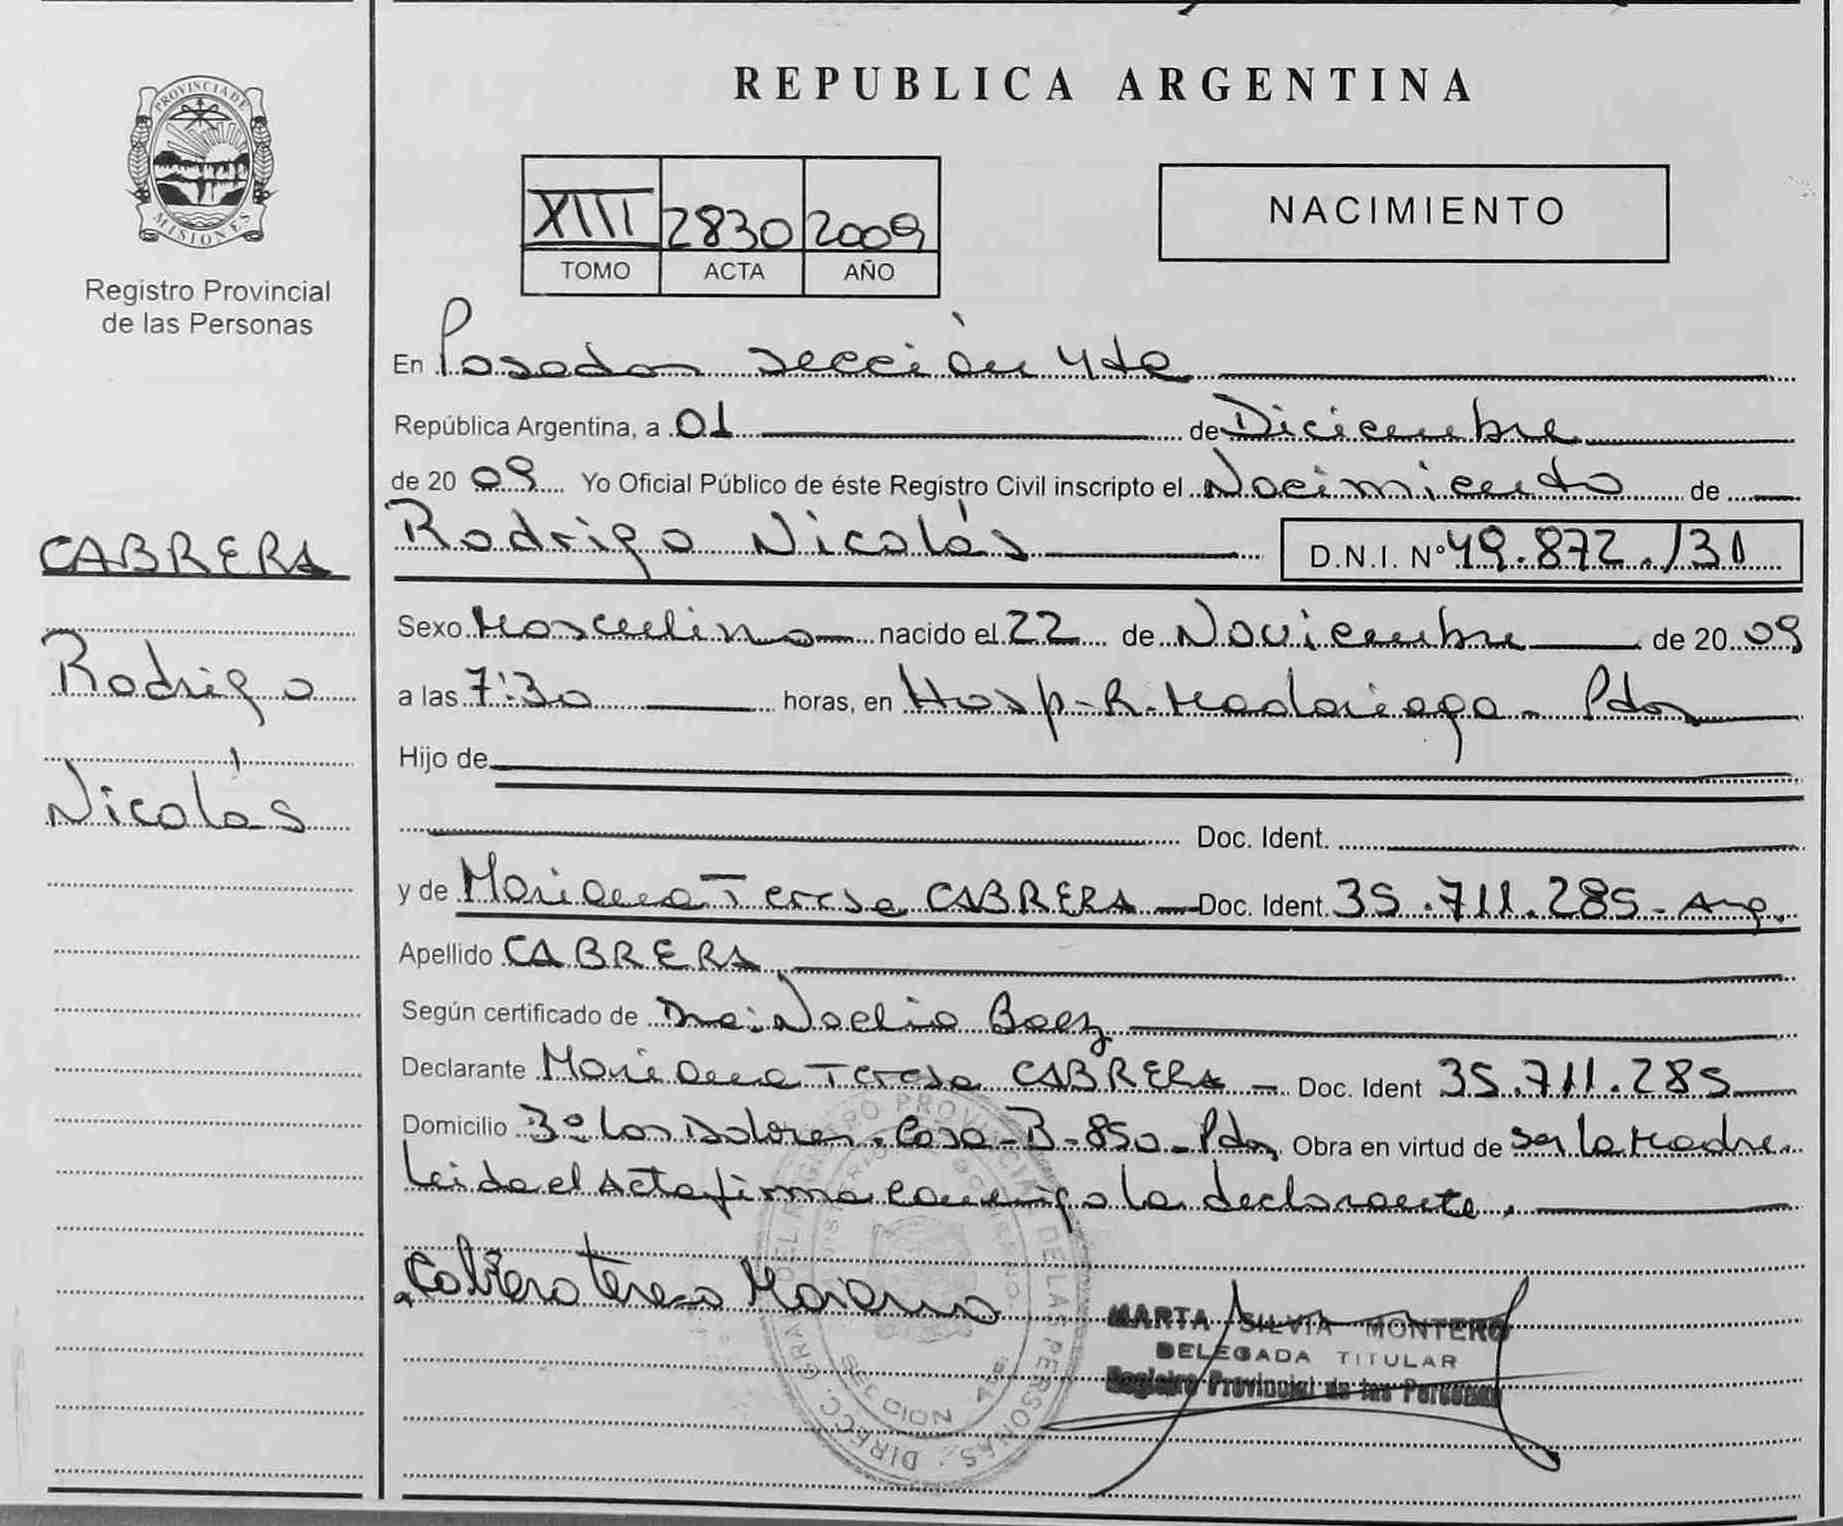 REPUBLICA ARGENTINA
PROVINCIA DE MISIONES
Registro Provincial
de las Personas
XIII 2830 2009
TOMO ACTA AÑO
NACIMIENTO
En Posadas sección 4ta
República Argentina, a 01 de Diciembre
de 20 09 Yo Oficial Público de éste Registro Civil inscripto el Nacimiento de
Rodrigo Nicolás D.N.I. Nº 49.872.131
CABRERA
Rodrigo
Nicolás
Sexo Masculino nacido el 22 de Noviembre de 20 09
a las 7:30 horas, en Hosp-R.Madariaga- Pdas
Hijo de
Doc. Ident.
y de Mariana Teresa CABRERA Doc. Ident. 35.711.285- Arg.
Apellido CABRERA
Según certificado de Dra: Noelia Baez
Declarante Mariana Teresa CABRERA - Doc. Ident 35.711.285
Domicilio 3º Los Dolores. Casa-B-850-Pdas Obra en virtud de ser la Madre.
Leida el Acta firma conmigo la declarante.
Cabrera teresa Mariana
MARTA SILVIA MONTERO
DELEGADA TITULAR
Registro Provincial de las Personas
DIRECC. GRAL. DEL REGISTRO PROVINCIAL DE LAS PERSONAS
SECCION 4ª